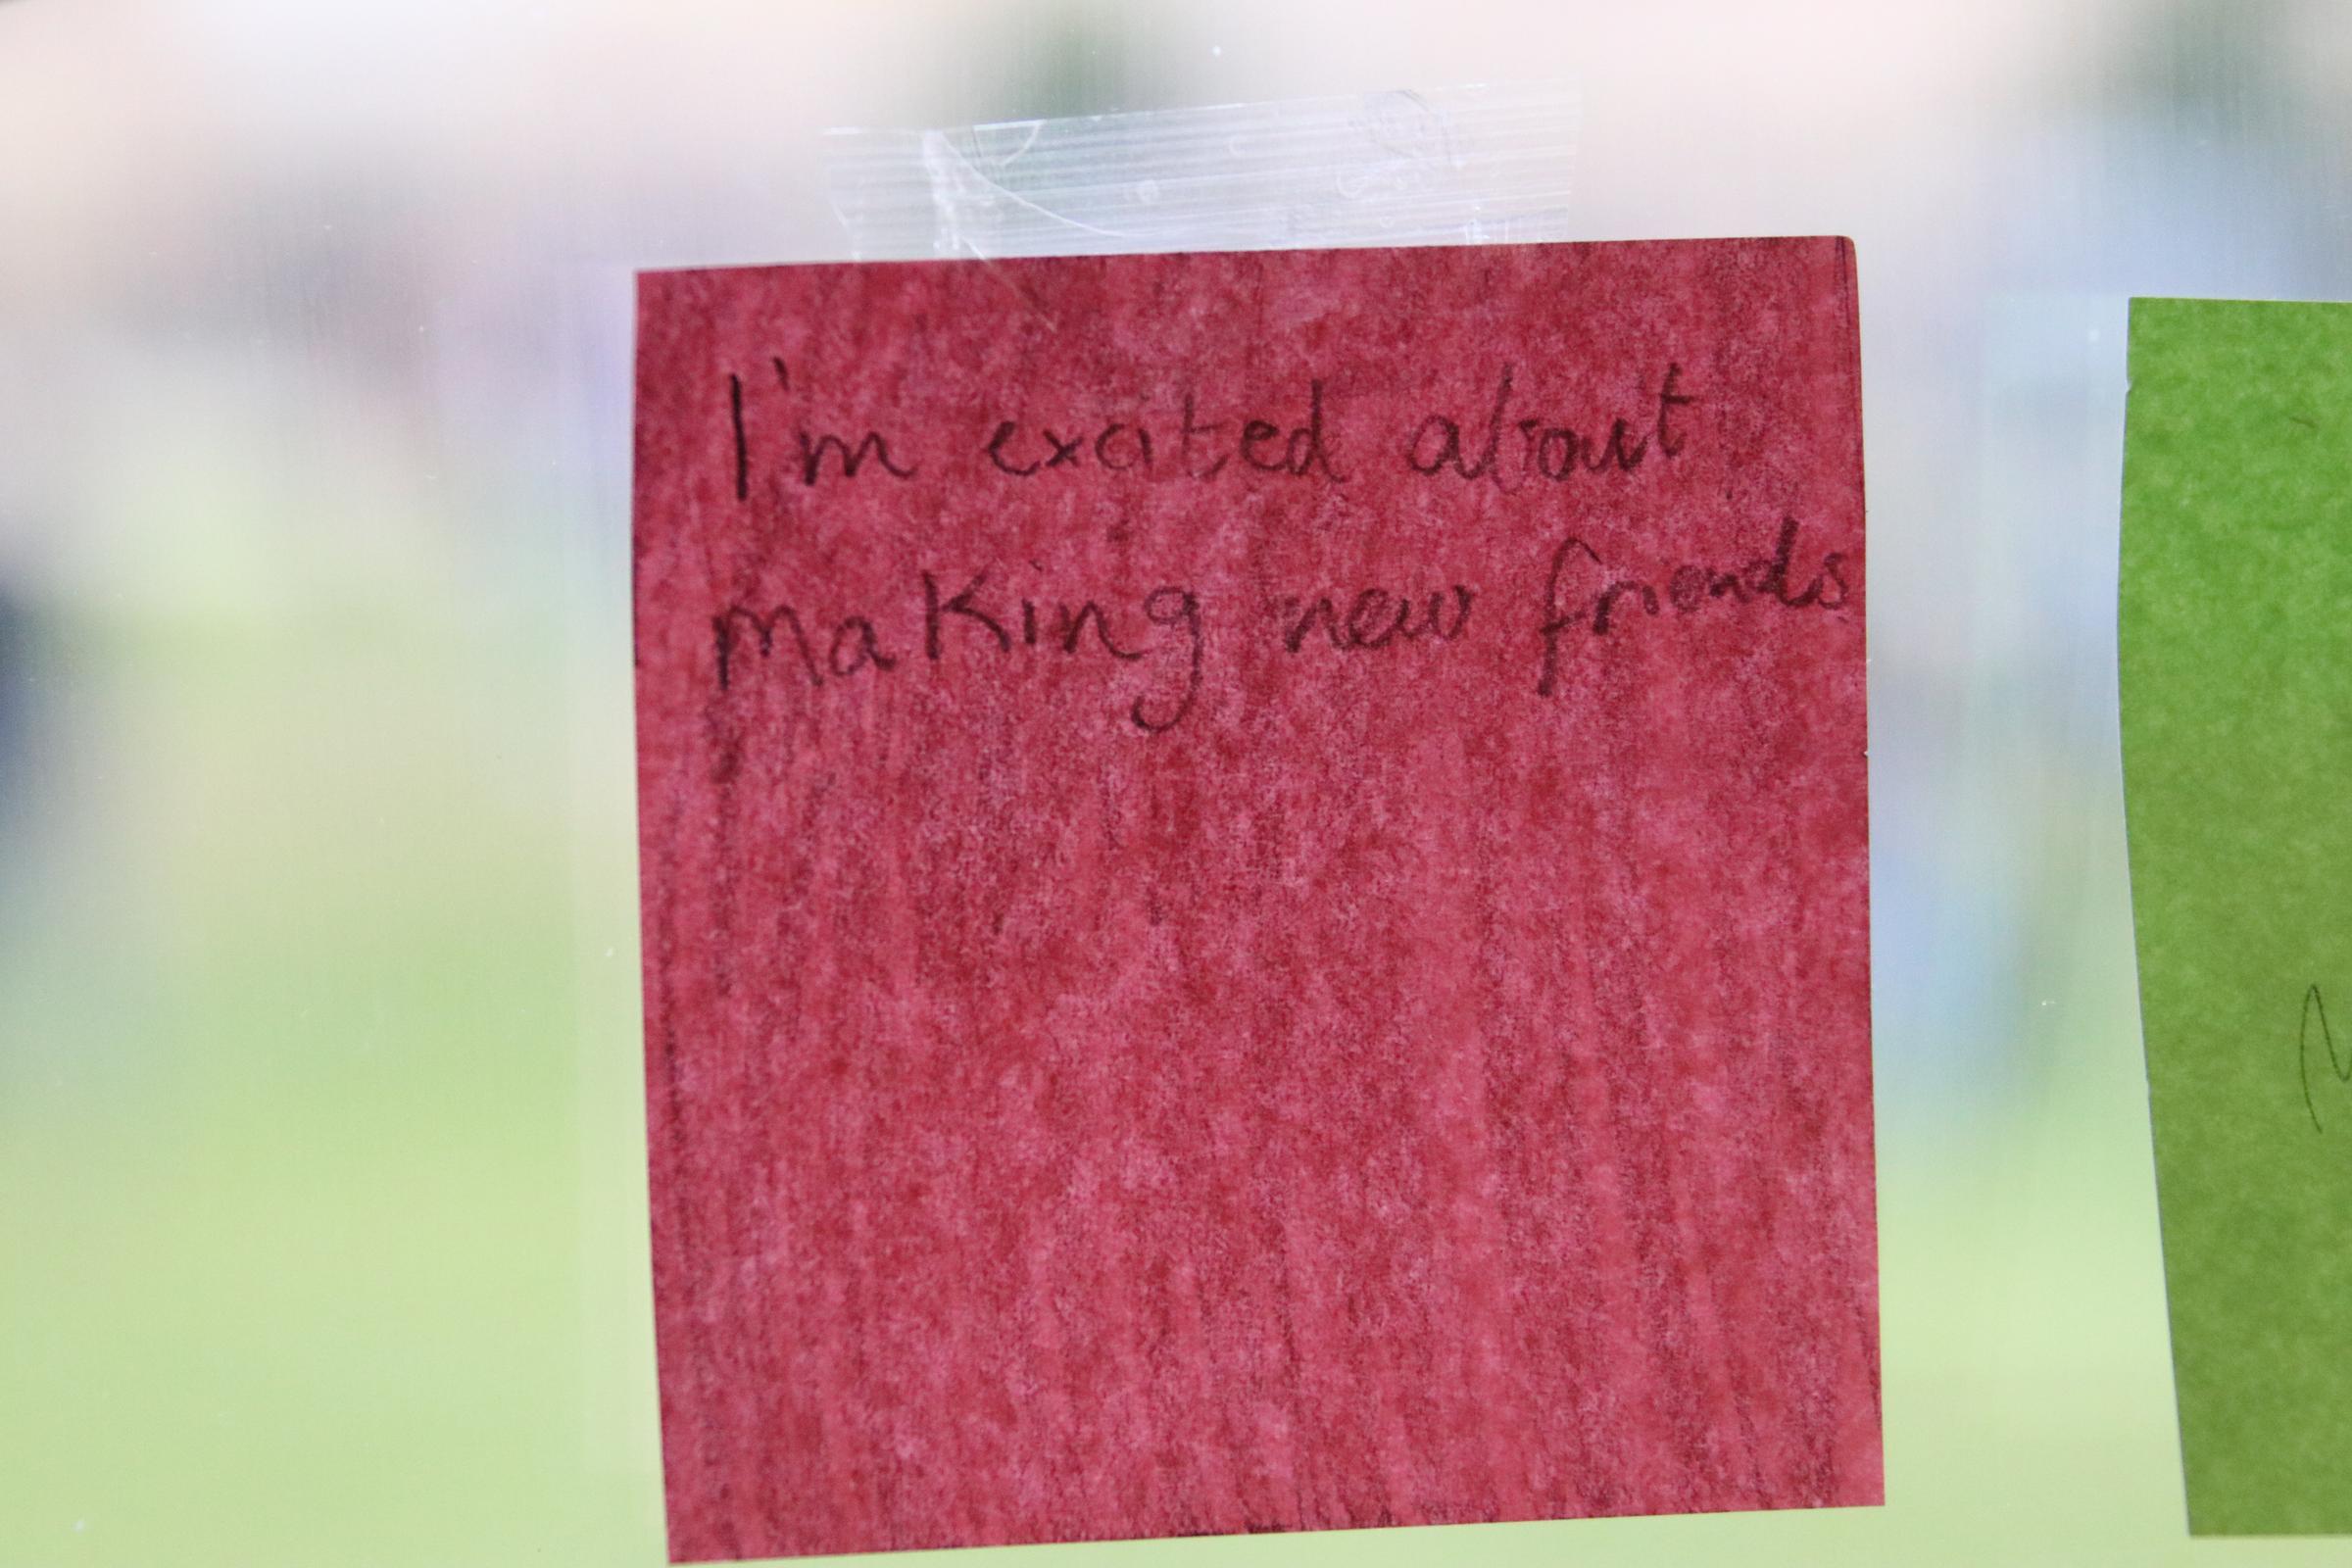 I'm excited about
making new friends